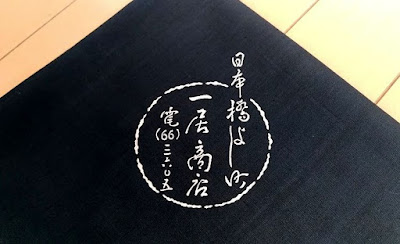 日本橋よし町
一居商店
電(66)三六〇五